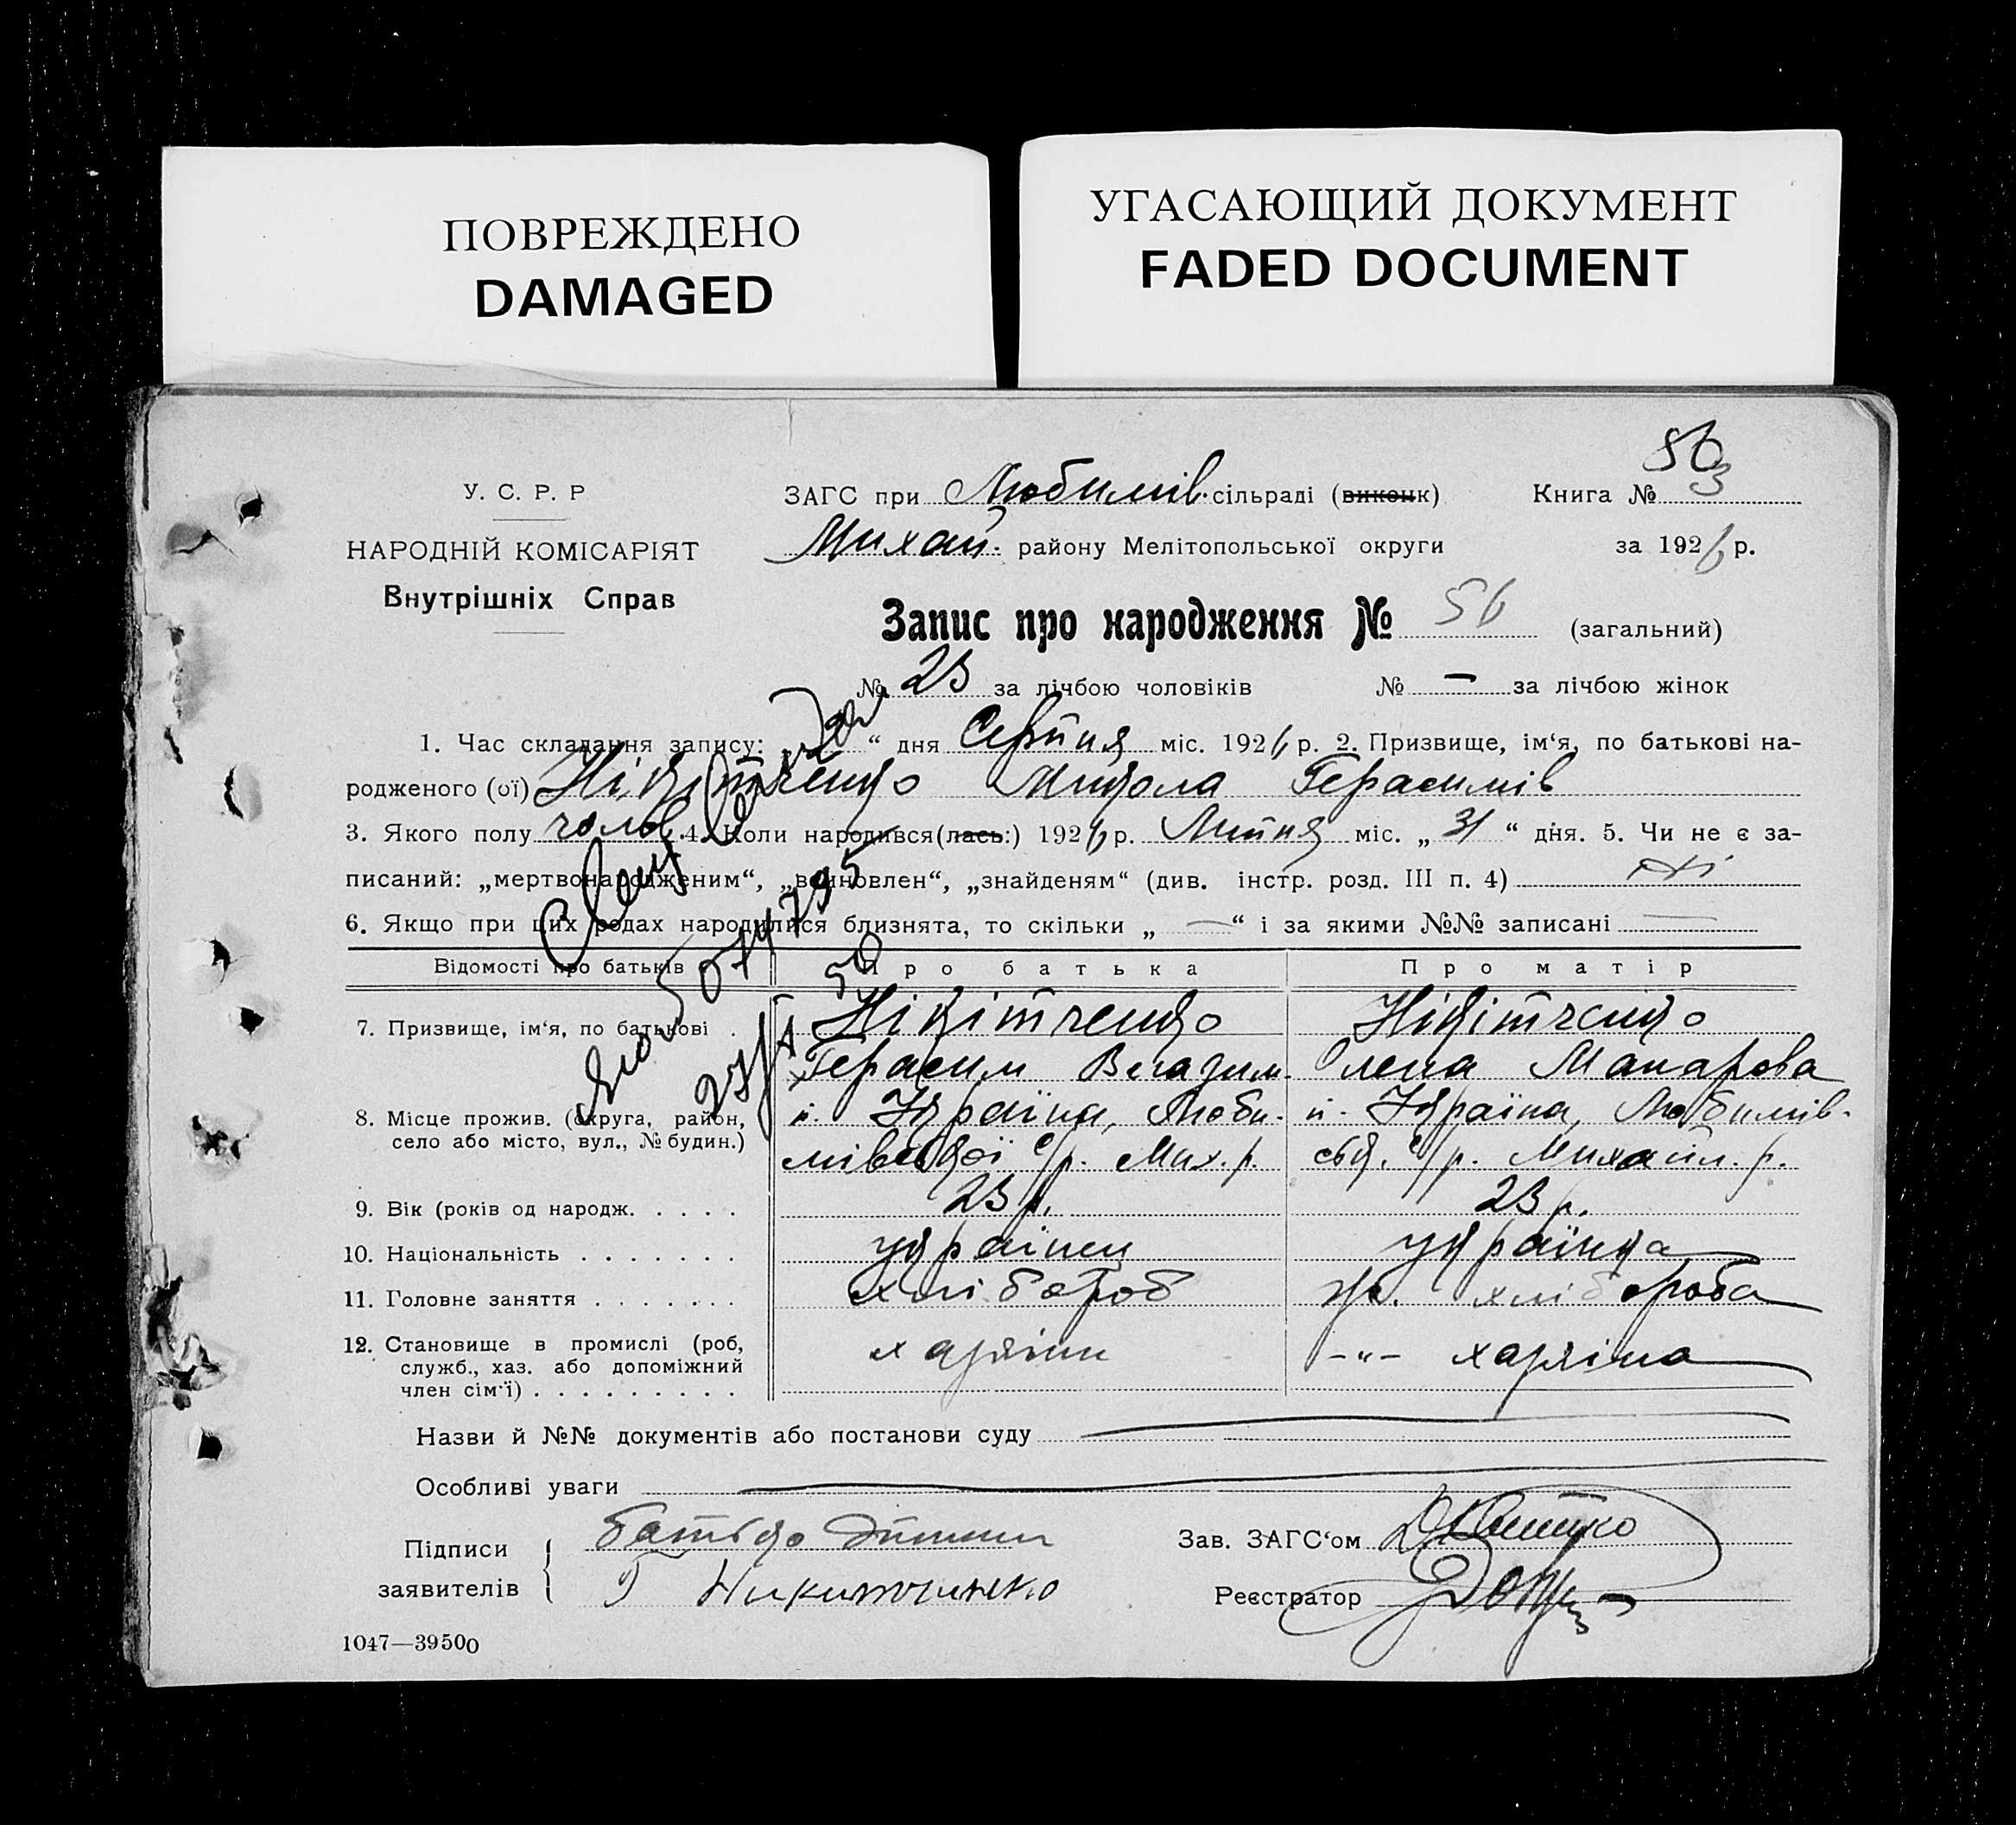 ПОВРЕЖДЕНО
DAMAGED
УГАСАЮЩИЙ ДОКУМЕНТ
FADED DOCUMENT
56
У. С. Р. Р
НАРОДНІЙ КОМІСАРІЯТ
Внутрішніх Справ
ЗАГС при Любимів. сільраді (виконк) Книга № 3
Михай. району Мелітопольської округи за 1926 р.
Запис про народження № 56 (загальний)
№ 23 за лічбою чоловіків № — за лічбою жінок
1. Час складання запису: „2“ дня Серпня міс. 1926 р. 2. Призвище, ім‘я, по батькові на-
родженого (ої) Нікітченко Микола Герасимів
3. Якого полу чолов. 4. Коли народився(лась:) 1926 р. Липня міс. „31“ дня. 5. Чи не є за-
писаний: „мертвонародженим“, „вдиновлен“, „знайденям“ (див. інстр. розд. III п. 4) ні
6. Якщо при цих родах народилися близнята, то скільки „—“ і за якими №№ записані —
Відомості про батьків Про батька Про матір
7. Призвище, ім‘я, по батькові . Нікітченко Нікітченко
Герасим Владим. Олена Макарова
8. Місце прожив. (округа, район, х. Україна, Люби- х. Україна, Любимів-
село або місто, вул., № будин.) мівської с/р. Мих. р. ськ. с/р. Михайл. р.
9. Вік (років од народж. . . . . 23 р. 23 р.
10. Національність . . . . . . . українец українка
11. Головне заняття . . . . . . . хлібороб хлібороба
12. Становище в промислі (роб, хазяїн -„- хазяїна
служб., хаз. або допоміжний
член сім‘ї) . . . . . . . . .
Назви й №№ документів або постанови суду —
Особливі уваги —
Підписи батько дитини Зав. ЗАГС‘ом
заявителів Г Никитченко Реєстратор
1047—39500